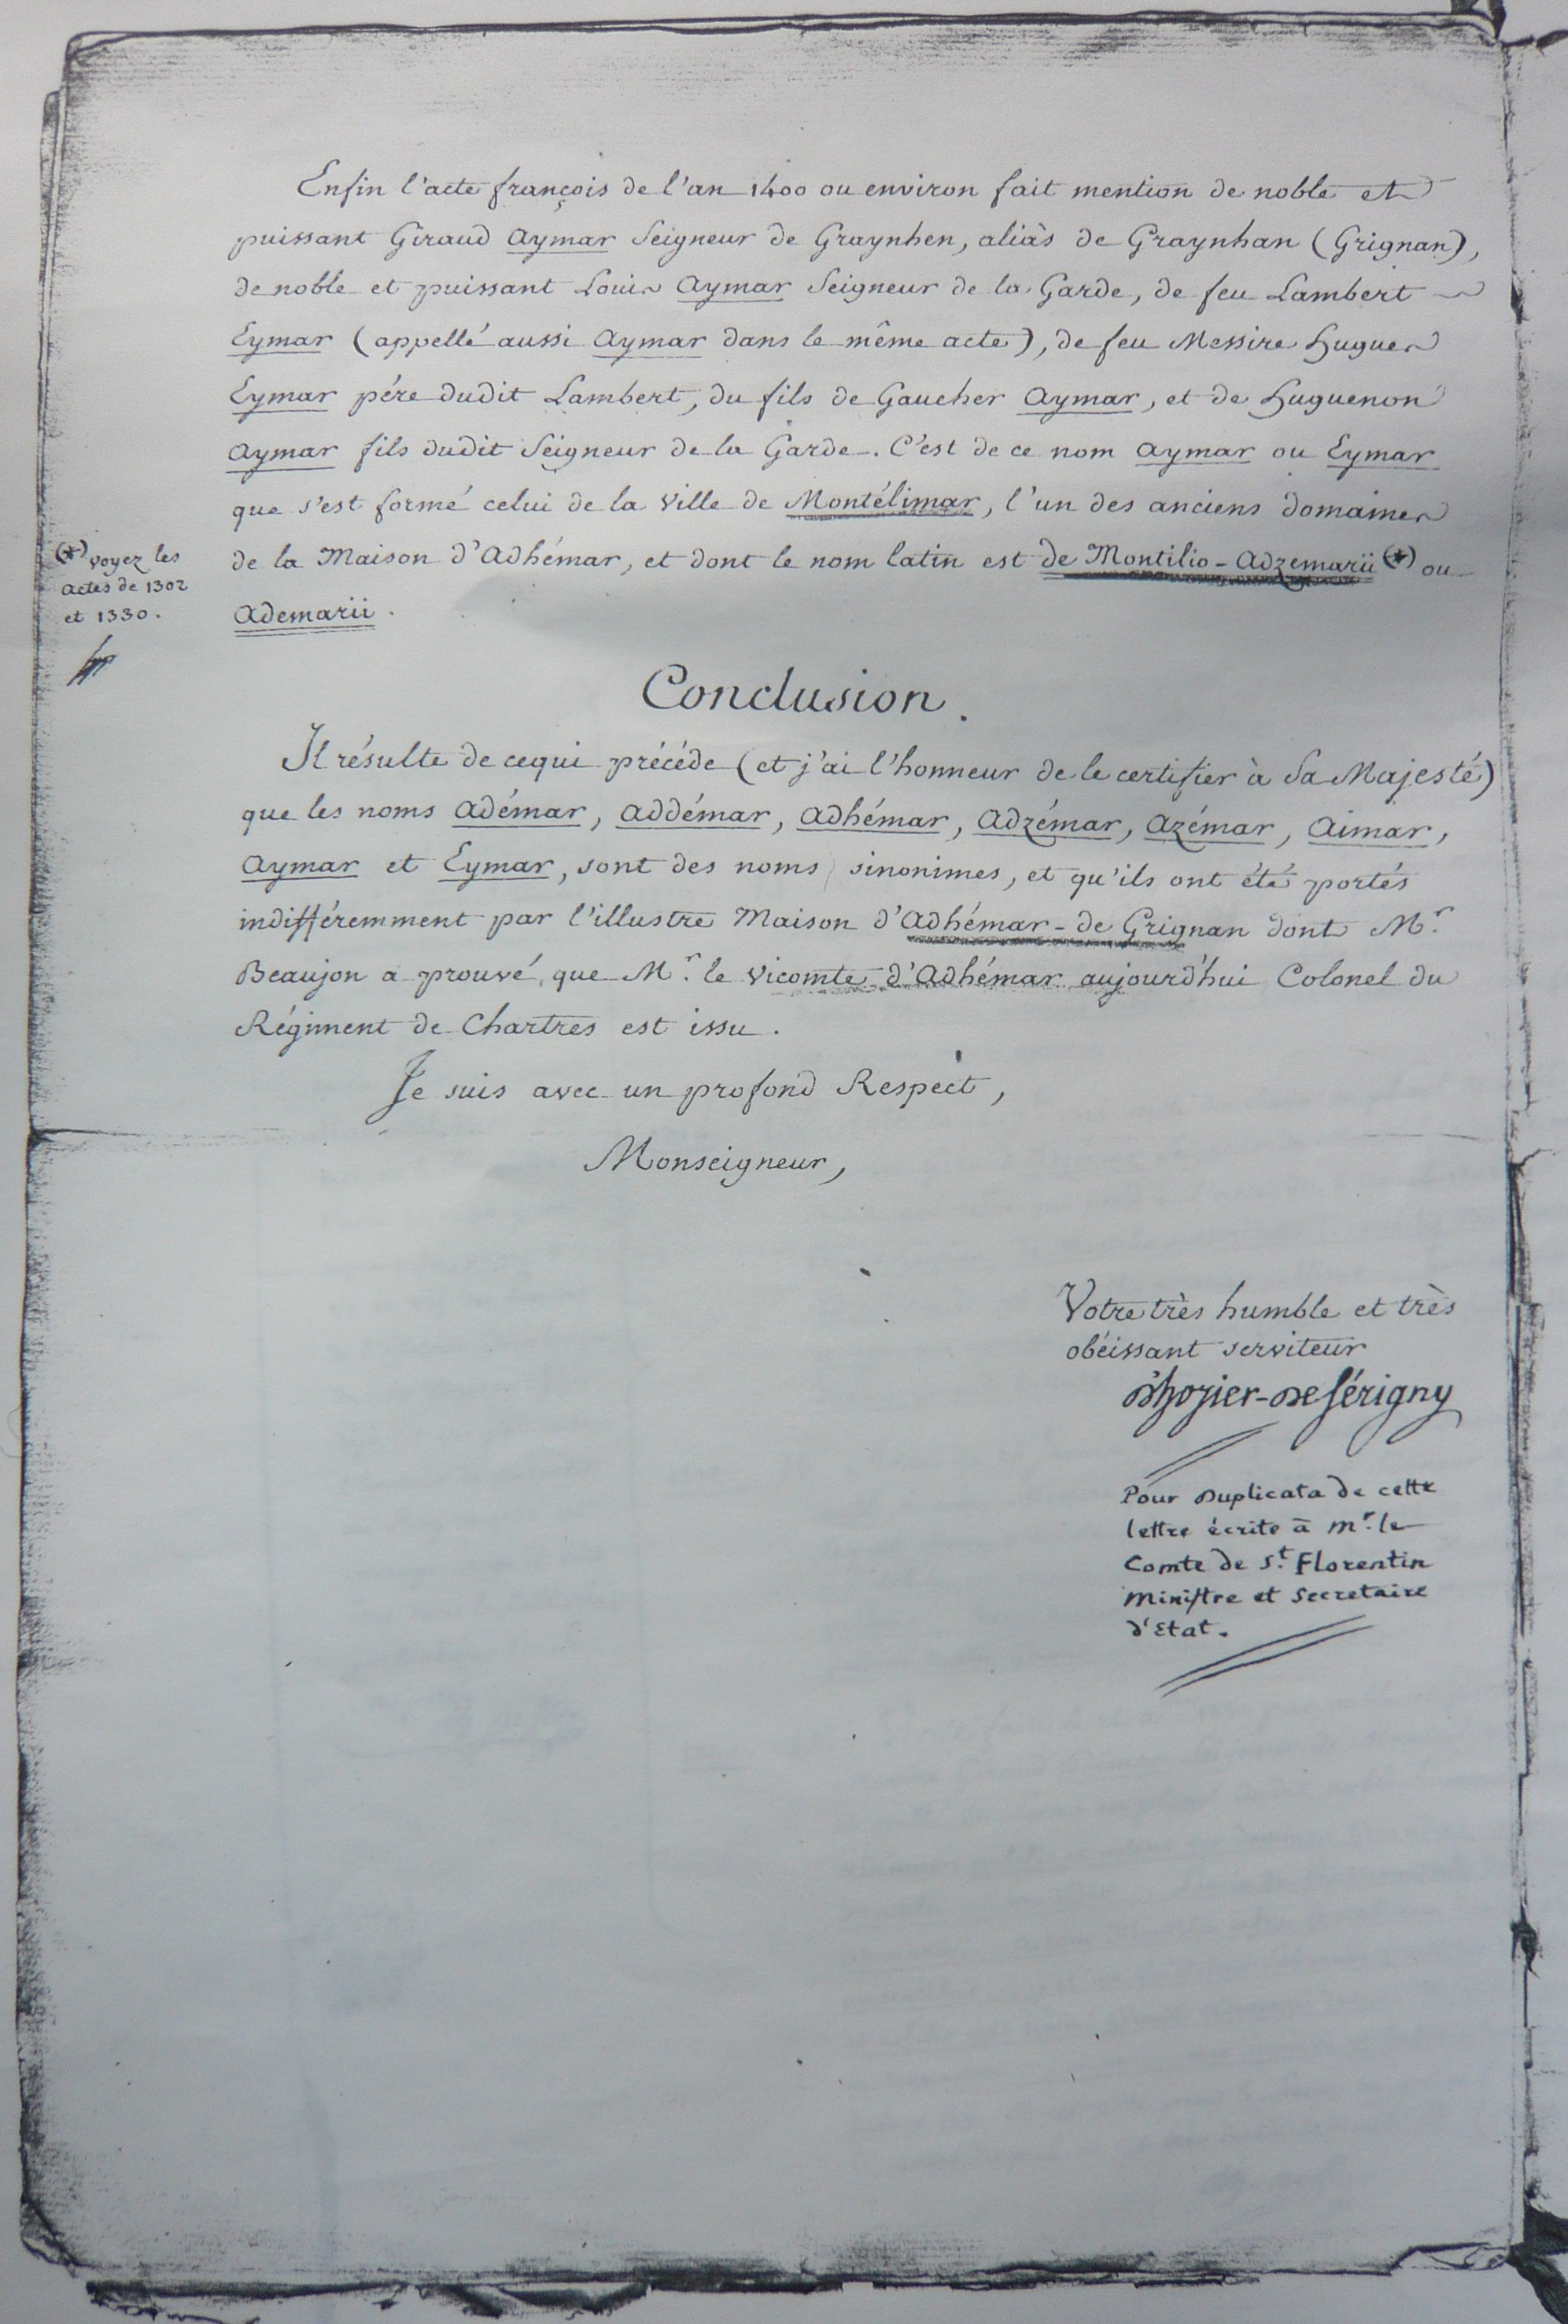 Enfin l'acte françois de l'an 1400 ou environ fait mention de noble et
puissant Giraud Aymar Seigneur de Graynhen, aliàs de Graynhan (Grignan),
de noble et puissant Louis Aymar Seigneur de la Garde, de feu Lambert
Eymar (appellé aussi Aymar dans le même acte), de feu Messire Hugues
Eymar pére dudit Lambert, du fils de Gaucher Aymar, et de Huguenon
Aymar fils dudit Seigneur de la Garde. C'est de ce nom Aymar ou Eymar
que s'est formé celui de la Ville de Montélimar, l'un des anciens domaines
de la Maison d'Adhémar, et dont le nom latin est de Montilio-Adzemarii (*) ou
Ademarii.
(*) voyez les
actes de 1302
et 1330.
Conclusion.
Il résulte de cequi précéde (et j'ai l'honneur de le certifier à Sa Majesté)
que les noms Adémar, Addémar, Adhémar, Adzémar, Azémar, Aimar,
Aymar et Eymar, sont des noms sinonimes, et qu'ils ont été portés
indifféremment par l'illustre Maison d'Adhémar-de Grignan dont Mr.
Beaujon a prouvé que Mr. le Vicomte d'Adhémar aujourd'hui Colonel du
Régiment de Chartres est issu.
Je suis avec un profond Respect,
Monseigneur,
Votre très humble et très
obéissant serviteur
D'hozier-De Sérigny
Pour Duplicata de cette
lettre écrite à Mr. le
Comte de St. Florentin
Ministre et Secretaire
d'Etat.